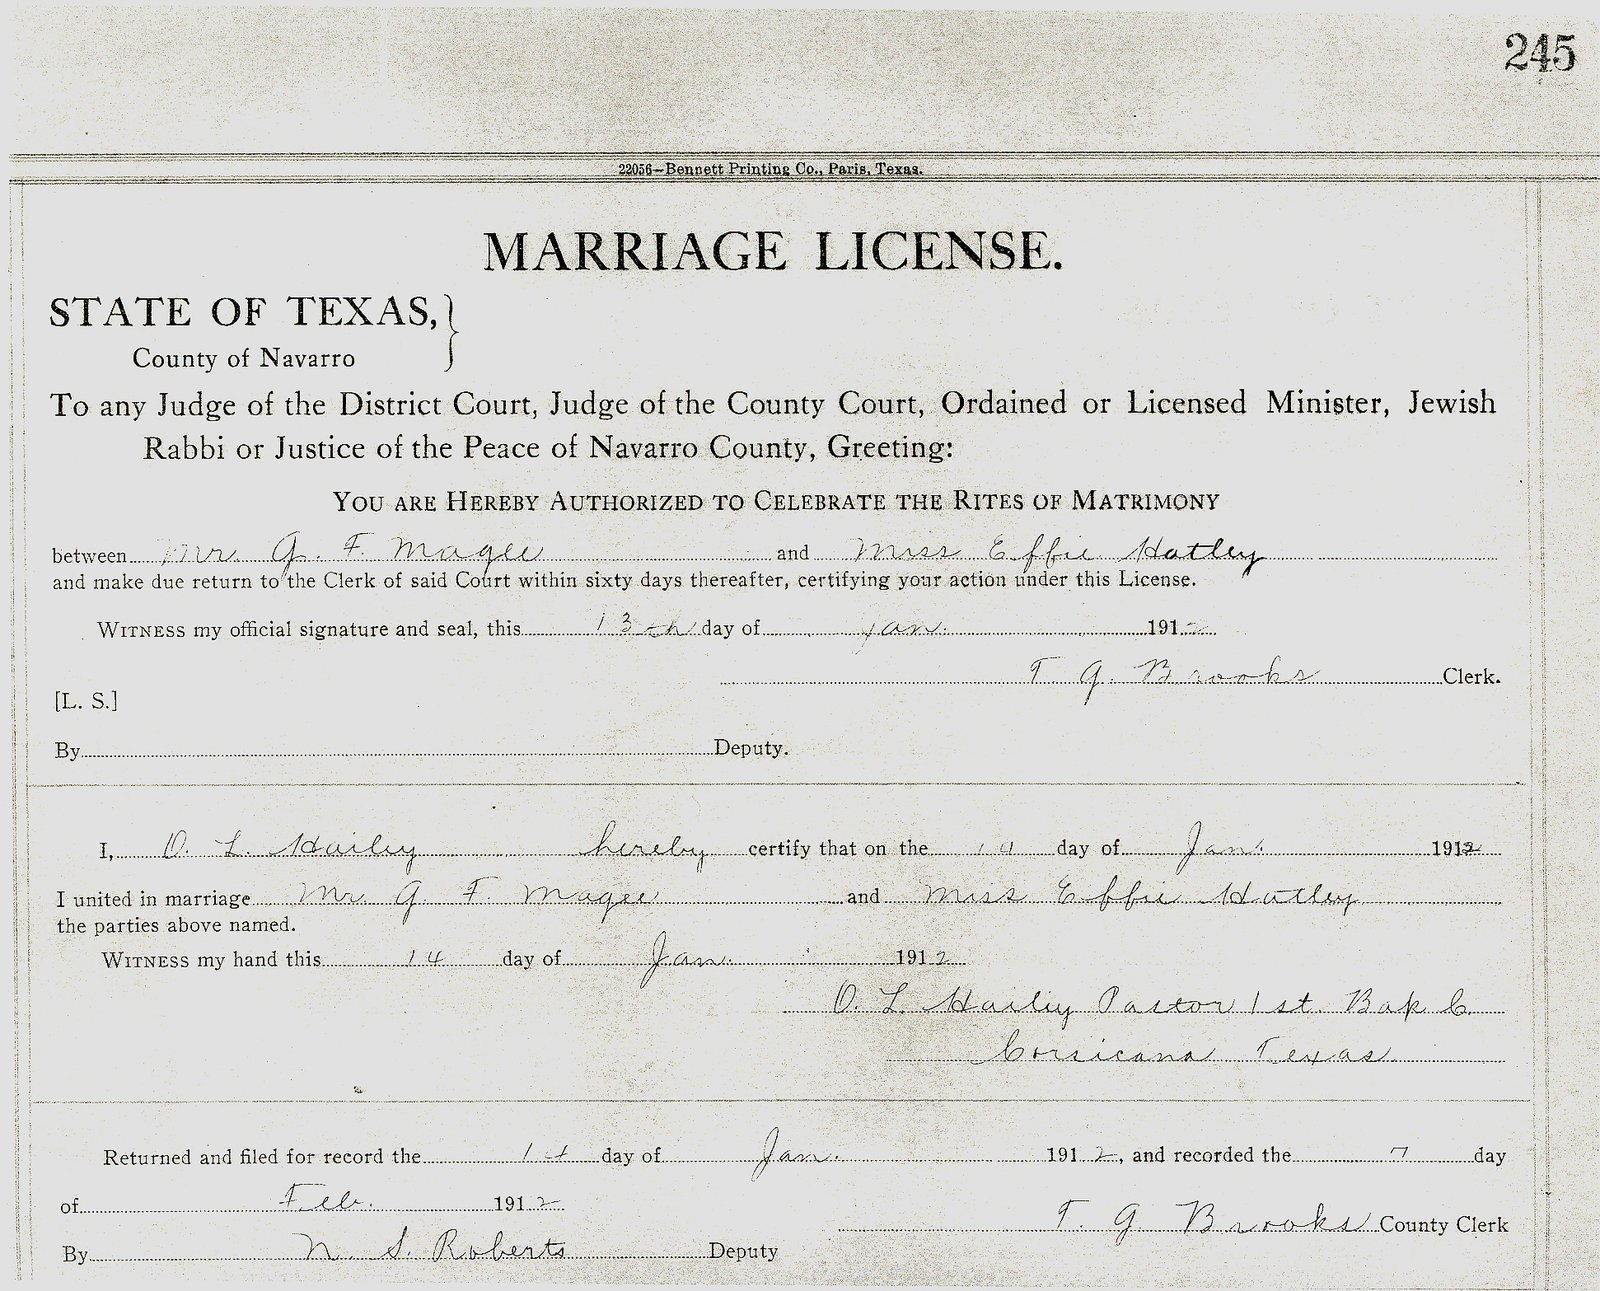 245
22056—Bennett Printing Co., Paris, Texas.
MARRIAGE LICENSE.
STATE OF TEXAS,
County of Navarro
To any Judge of the District Court, Judge of the County Court, Ordained or Licensed Minister, Jewish
Rabbi or Justice of the Peace of Navarro County, Greeting:
YOU ARE HEREBY AUTHORIZED TO CELEBRATE THE RITES OF MATRIMONY
between Mr. G. F. Magee and Miss Effie Hatley
and make due return to the Clerk of said Court within sixty days thereafter, certifying your action under this License.
WITNESS my official signature and seal, this 13th day of Jan. 1912
T G. Brooks Clerk.
[L. S.]
By Deputy.
I, O. L. Hailey hereby certify that on the 14 day of Jan. 1912
I united in marriage Mr. G F. Magee and Miss Effie Hatley
the parties above named.
WITNESS my hand this 14 day of Jan. 1912
O. L. Hailey Pastor 1st. Bap C.
Corsicana Texas
Returned and filed for record the 14 day of Jan. 1912, and recorded the 7 day
of Feb. 1912
T. G. Brooks County Clerk
By N. S. Roberts Deputy